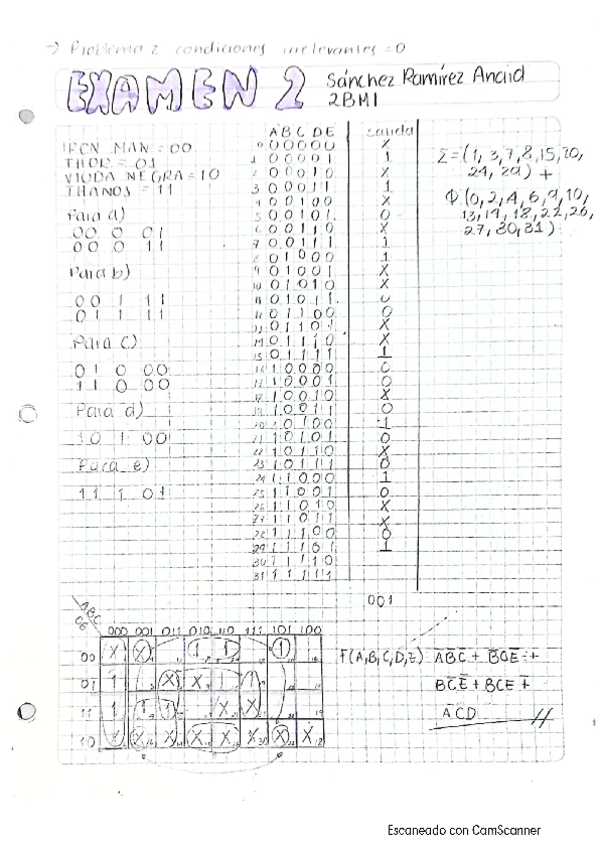 → Problema 2 condiciones irrelevantes = 0
EXAMEN 2
Sánchez Ramírez Anaid
2BM1
IRON MAN = 00
THOR = 01
VIUDA NEGRA = 10
THANOS = 11
Para a)
00 0 01
00 0 11
Para b)
00 1 11
01 1 11
Para c)
01 0 00
11 0 00
Para d)
10 1 00
Para e)
11 1 01
A B C D E salida
0 0 0 0 0 0 X
1 0 0 0 0 1 1
2 0 0 0 1 0 X
3 0 0 0 1 1 1
4 0 0 1 0 0 X
5 0 0 1 0 1 0
6 0 0 1 1 0 X
7 0 0 1 1 1 1
8 0 1 0 0 0 1
9 0 1 0 0 1 X
10 0 1 0 1 0 X
11 0 1 0 1 1 0
12 0 1 1 0 0 0
13 0 1 1 0 1 X
14 0 1 1 1 0 X
15 0 1 1 1 1 1
16 1 0 0 0 0 0
17 1 0 0 0 1 0
18 1 0 0 1 0 X
19 1 0 0 1 1 0
20 1 0 1 0 0 1
21 1 0 1 0 1 0
22 1 0 1 1 0 X
23 1 0 1 1 1 0
24 1 1 0 0 0 1
25 1 1 0 0 1 0
26 1 1 0 1 0 X
27 1 1 0 1 1 X
28 1 1 1 0 0 0
29 1 1 1 0 1 1
30 1 1 1 1 0
31 1 1 1 1 1
Σ = (1, 3, 7, 8, 15, 20,
24, 29) +
Φ (0, 2, 4, 6, 9, 10,
13, 14, 18, 22, 26,
27, 30, 31)
001
ABC
000 001 011 010 110 111 101 100
00 X X 1 1 1
01 1 X X 1 1
11 1 1 1 X X
10 X X X X X X X X
F(A,B,C,D,E)
Escaneado con CamScanner